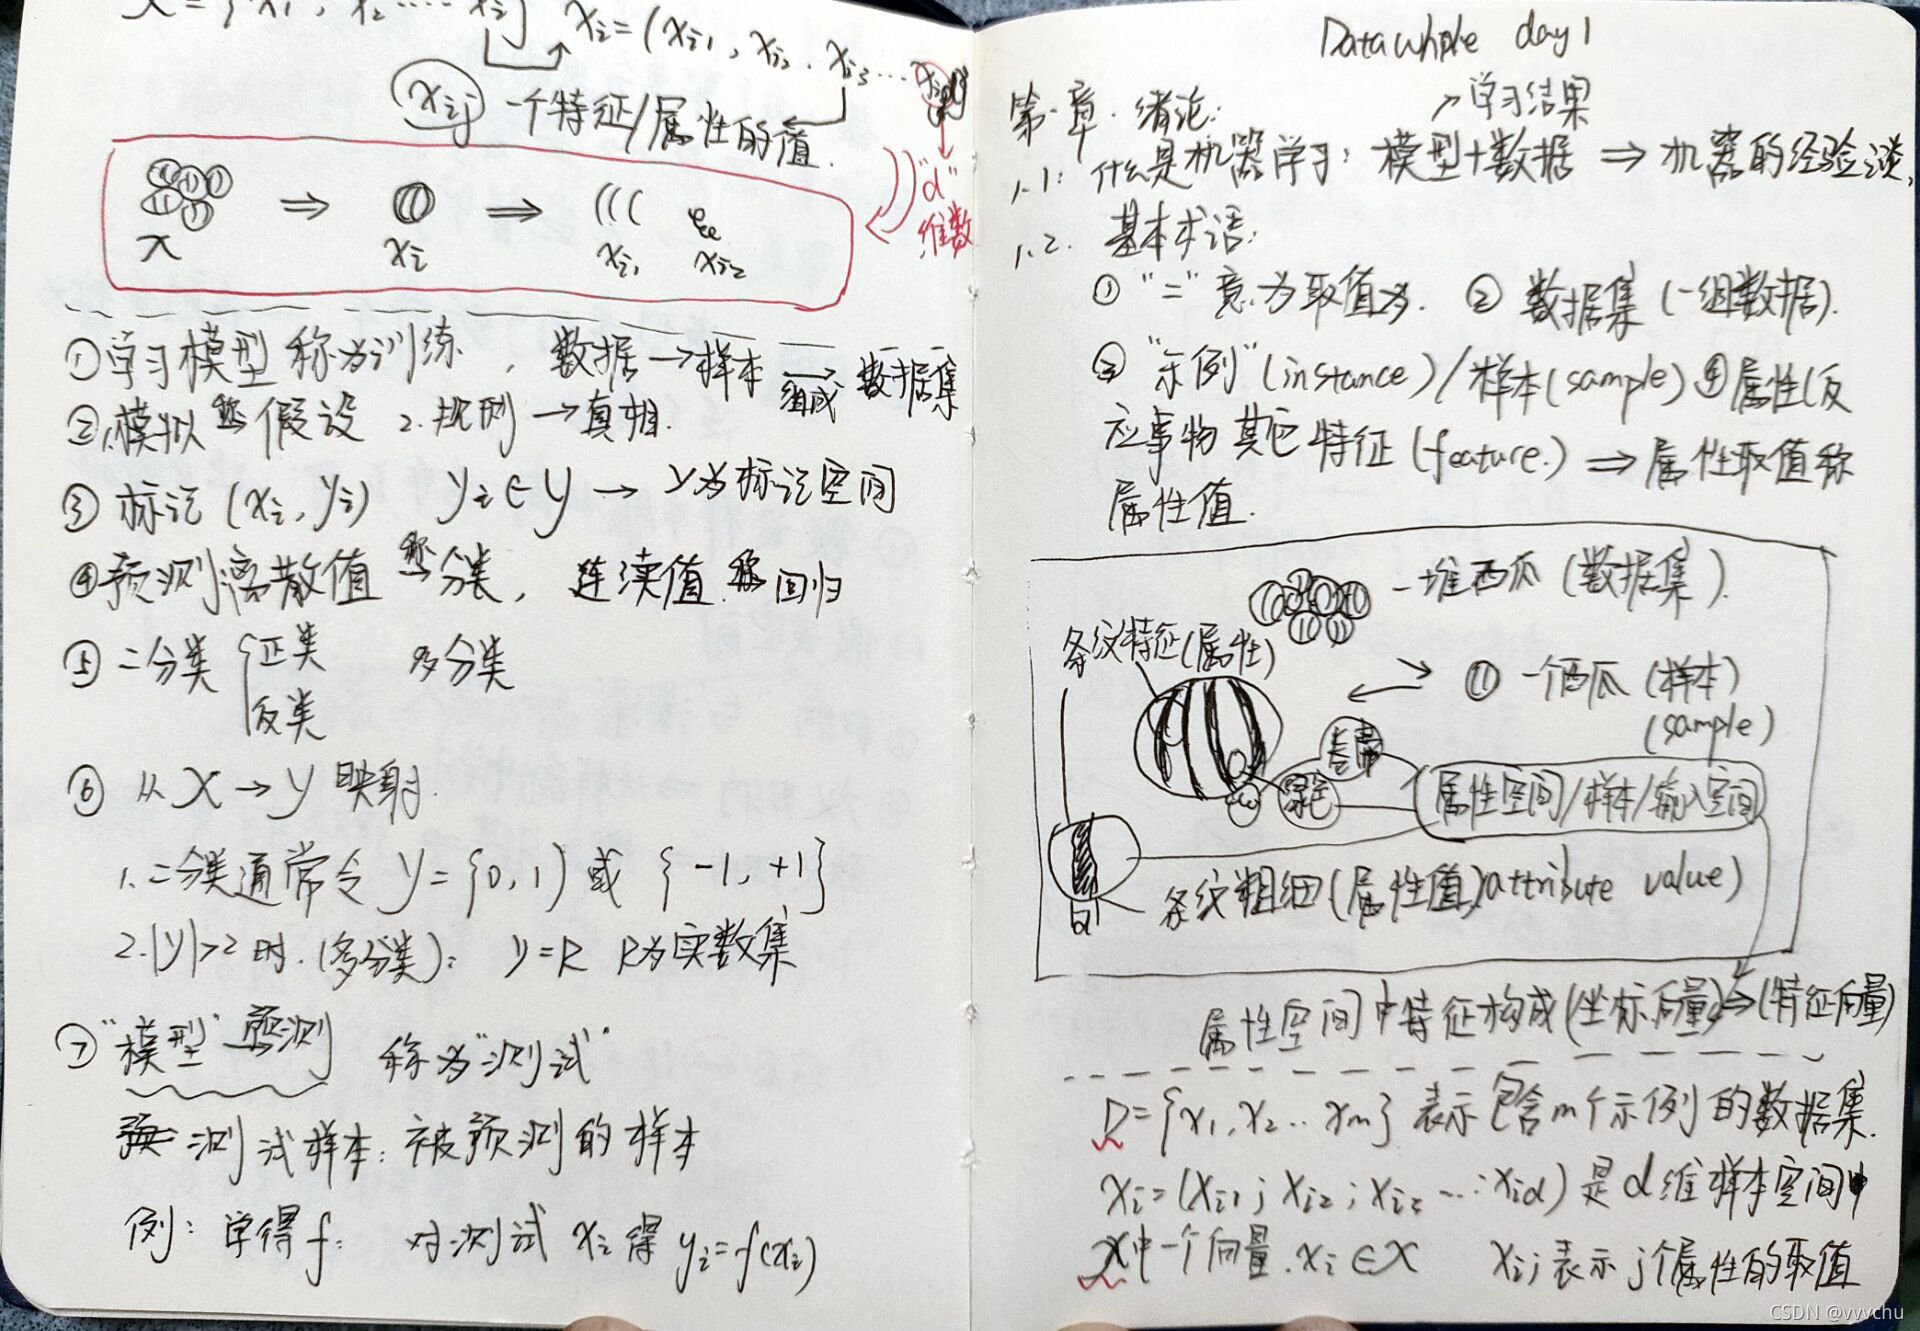 X = { x1, x2 ..... xi }   xi = (xi1, xi2, xi3 ... xid)
xij 一个特征/属性的值.
"d"
维数
x   xi   xi1   xi2
① 学习模型 称为训练, 数据→样本 组成→ 数据集
② 1.模拟 称 假设 2.规则 → 真相.
③ 标记 (xi, yi)   yi ∈ y → y为标记空间
④ 预测离散值 称→ 分类, 连续值 称 回归
⑤ 二分类 { 正类   多分类
反类
⑥ 从 X → y 映射.
1. 二分类通常令 y = {0, 1} 或 {-1, +1}
2. |y|>2 时. (多分类): y = R R为实数集
⑦ "模型" 预测 称为"测试"
测试样本: 被预测的样本
例: 学得 f: 对测试 xi 得 yi = f(xi)
Datawhale day1
第一章. 绪论:
↗学习结果
1.1: 什么是机器学习: 模型+数据 ⇒ 机器的经验谈.
1.2. 基本术语:
① "=" 意为取值为. ② 数据集 (一组数据).
③ "示例"(instance)/样本(sample) ④属性(反
应事物其它特征(feature.) ⇒ 属性取值称
属性值.
一堆西瓜 (数据集).
条纹特征(属性)
一个西瓜 (样本)
(sample)
卷蒂
绿色
属性空间/样本/输入空间
条纹粗细(属性值)attribute value)
属性空间中特征构成(坐标向量) ⇒ (特征向量)
D = {x1, x2 ... xm} 表示包含m个示例的数据集.
xi = (xi1; xi2; xi3 ...; xid) 是d维样本空间中
X中一个向量. xi ∈ X   xij 表示 j个属性的取值
CSDN @vvvchu